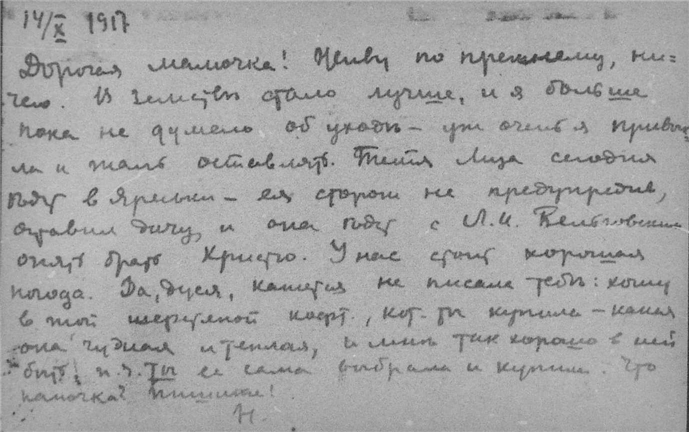 14/X 1917
Дорогая мамочка! Живу по прежнему, ни=
чего. В земствѣ стало лучше, и я больше
пока не думаю об уходѣ – уж очень я привык-
ла и жаль оставлять. Тетя Лиза сегодня
едет в – ея сторож не предупредил,
оставил дичу, и она едет с Л.И.
опять брать Христю. У нас стоит хорошая
погода. Да, дуся, кажется не писала тебѣ: хожу
в той шерстяной кофт., кот. ты купила – какая
она чудная и теплая, и мнѣ так хорошо в ней
быть, п.ч. ты ее сама выбрала и купила. Что
папочка? Пишите!
Н.